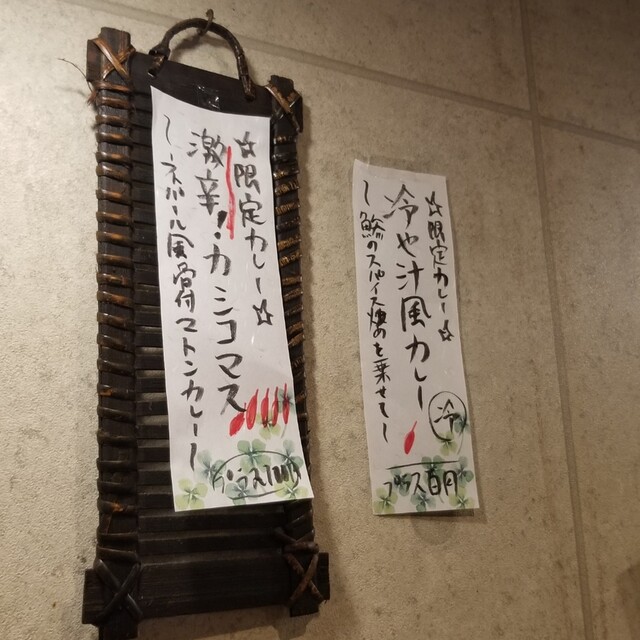 ☆限定カレー☆
激辛!カシコマス
〜ネパール風骨付マトンカレー〜
☆限定カレー☆
冷や汁風カレー
冷
〜鯵のスパイス燻を乗せて〜
プラス百円